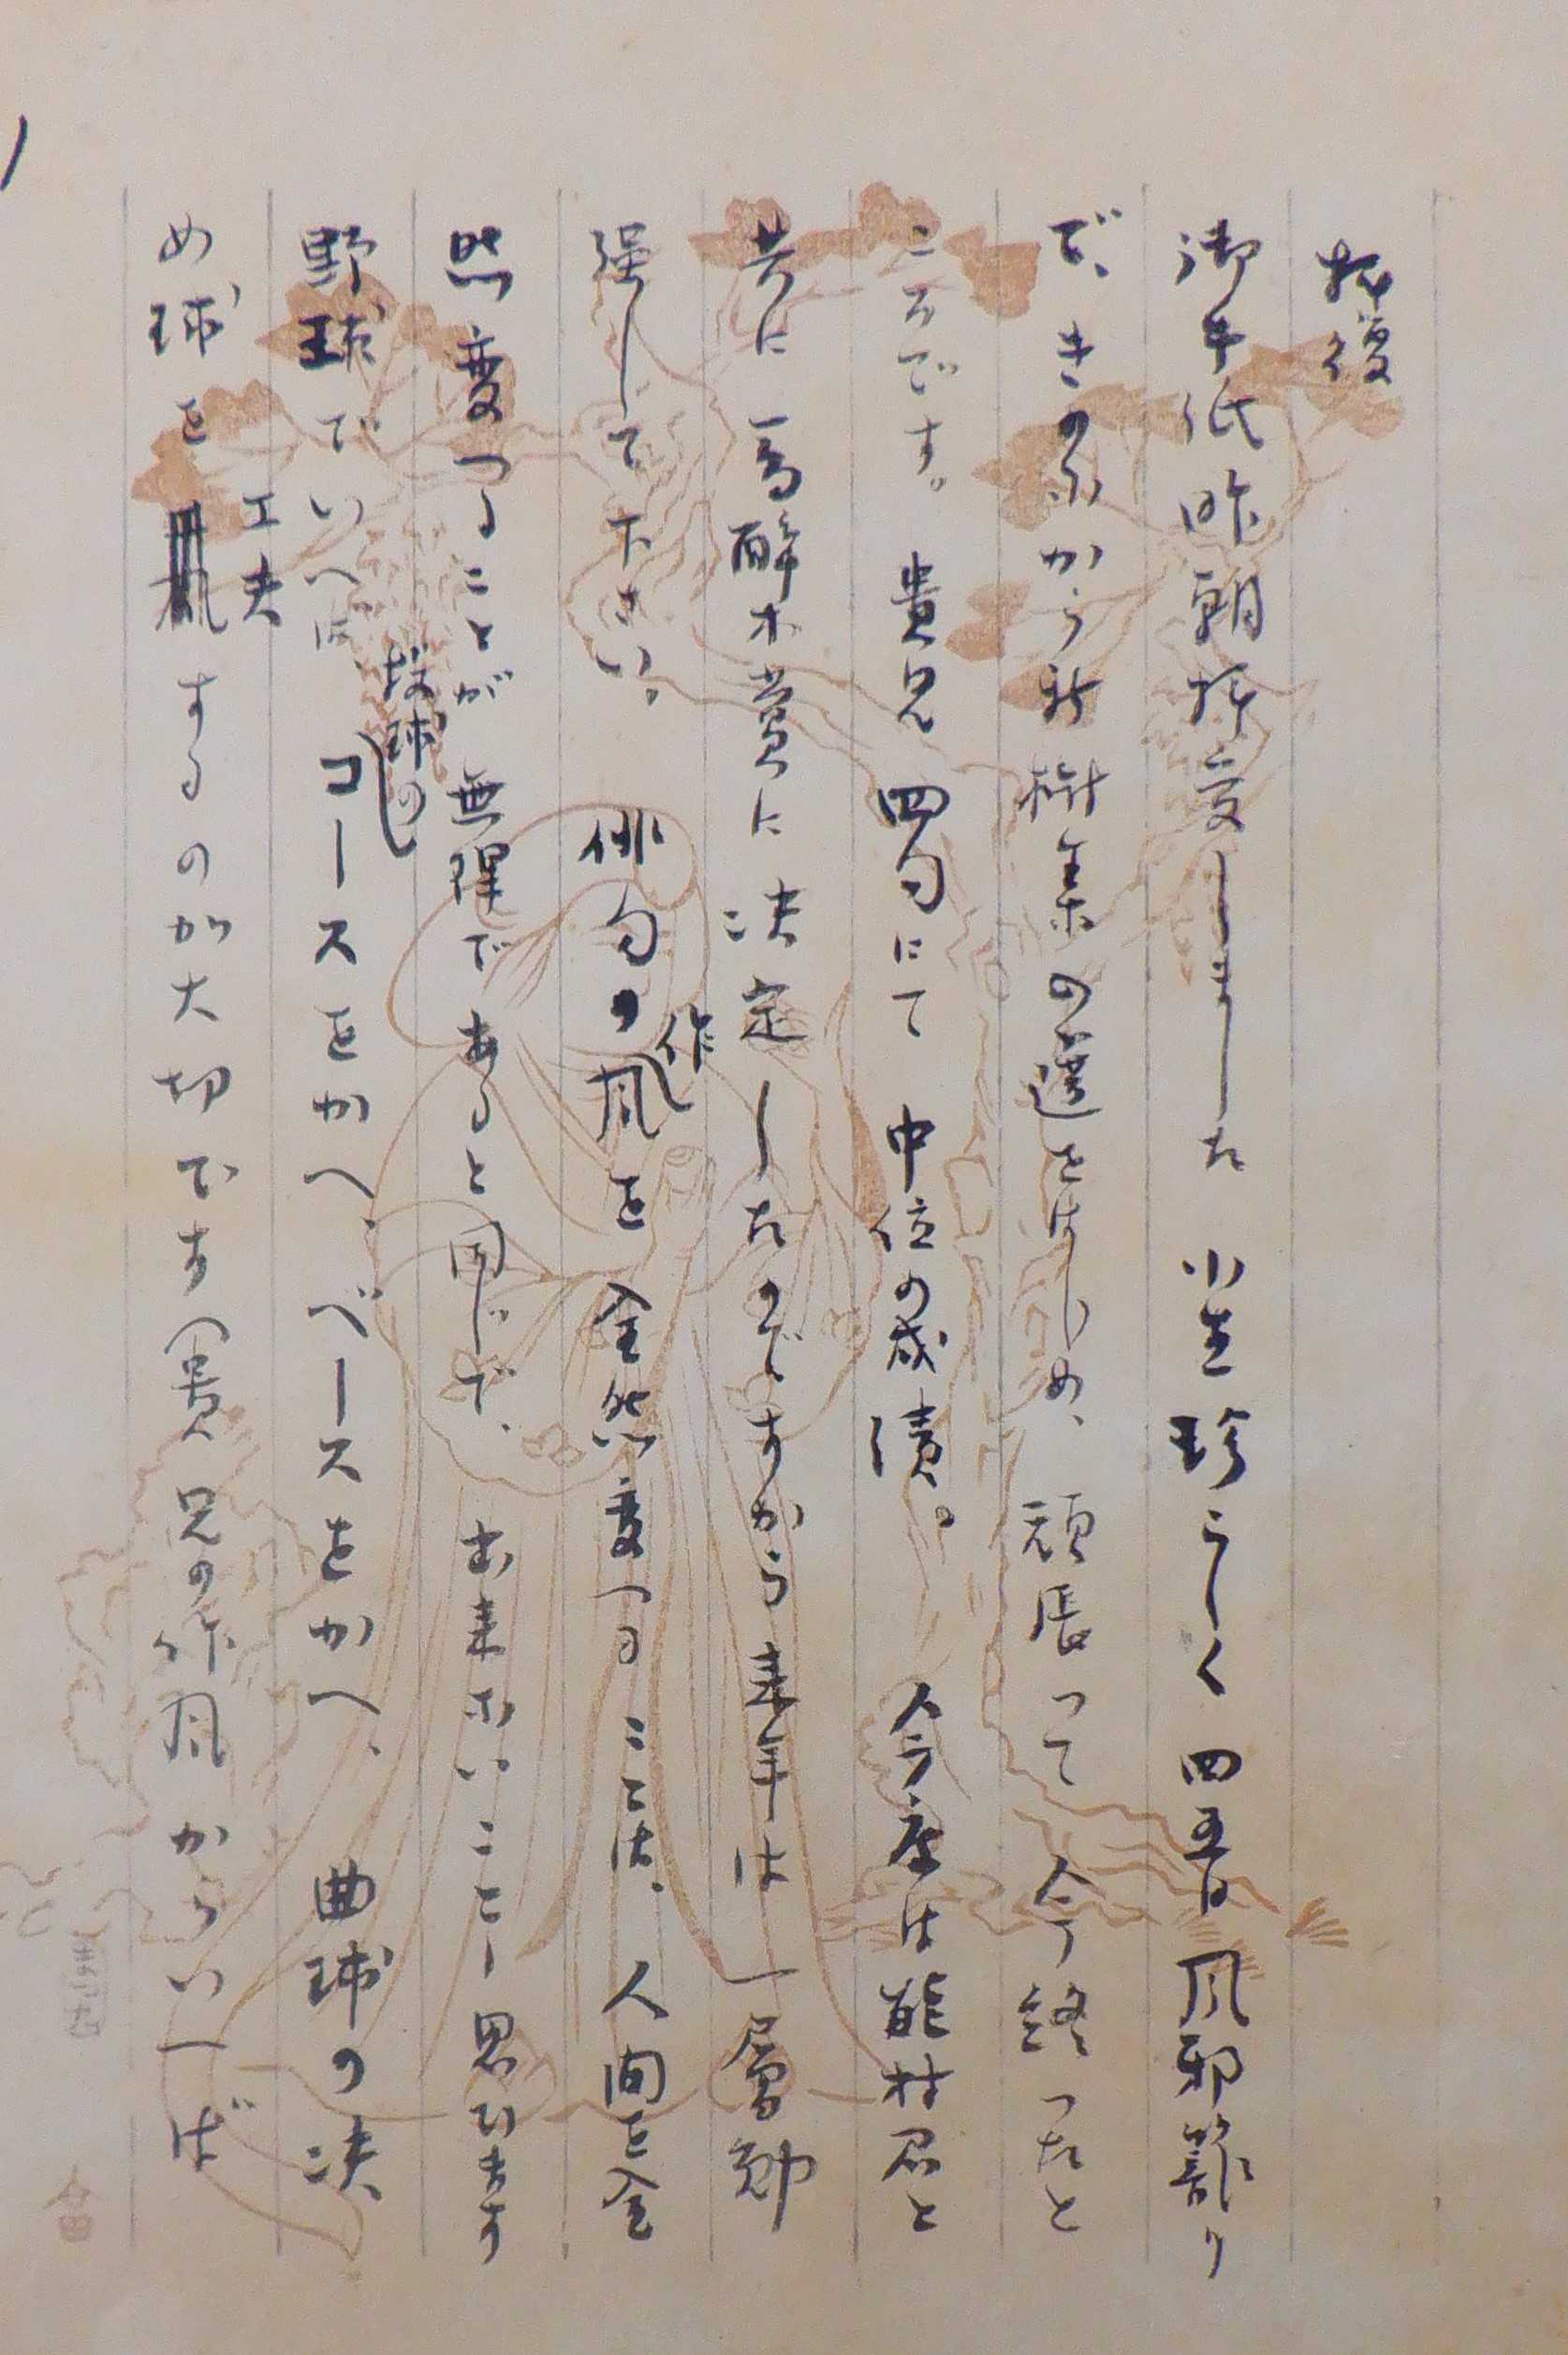 拝復
御手紙昨朝拝受しました 小生珍らしく四五日風邪籠り
で、きのふから新樹集の選をはじめ、頑張って今終ったと
ころです。貴兄四句にて中位の成績。今度は能村君と
共に馬酔木賞に決定したのですから来年は一層勉
強して下さい。俳句の作風を全然変へることは、人間を全
然変へることが無理であると同じで、出来ないことゝ思ひます
野球でいへば、投球のコースをかへ、ベースをかへ、曲球の決
め球を工夫するのが大切です(貴兄の作風からいへば